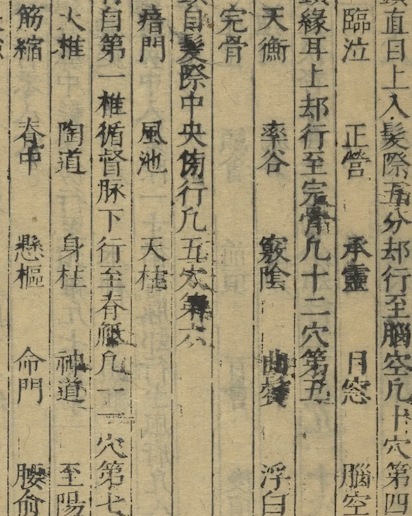 直目上入髮際五分却行至腦空凡十穴第四
臨泣 正營 承靈 目窓 腦空
緣耳上却行至完骨凡十二穴第五
天衡 率谷 竅陰 曲鬢 浮白
完骨
自髮際中央傍行凡五穴第六
瘖門 風池 天柱
自第一椎循督脉下行至脊骶凡一一穴第七
大椎 陶道 身柱 神道 至陽
筋縮 脊中 懸樞 命門 腰俞